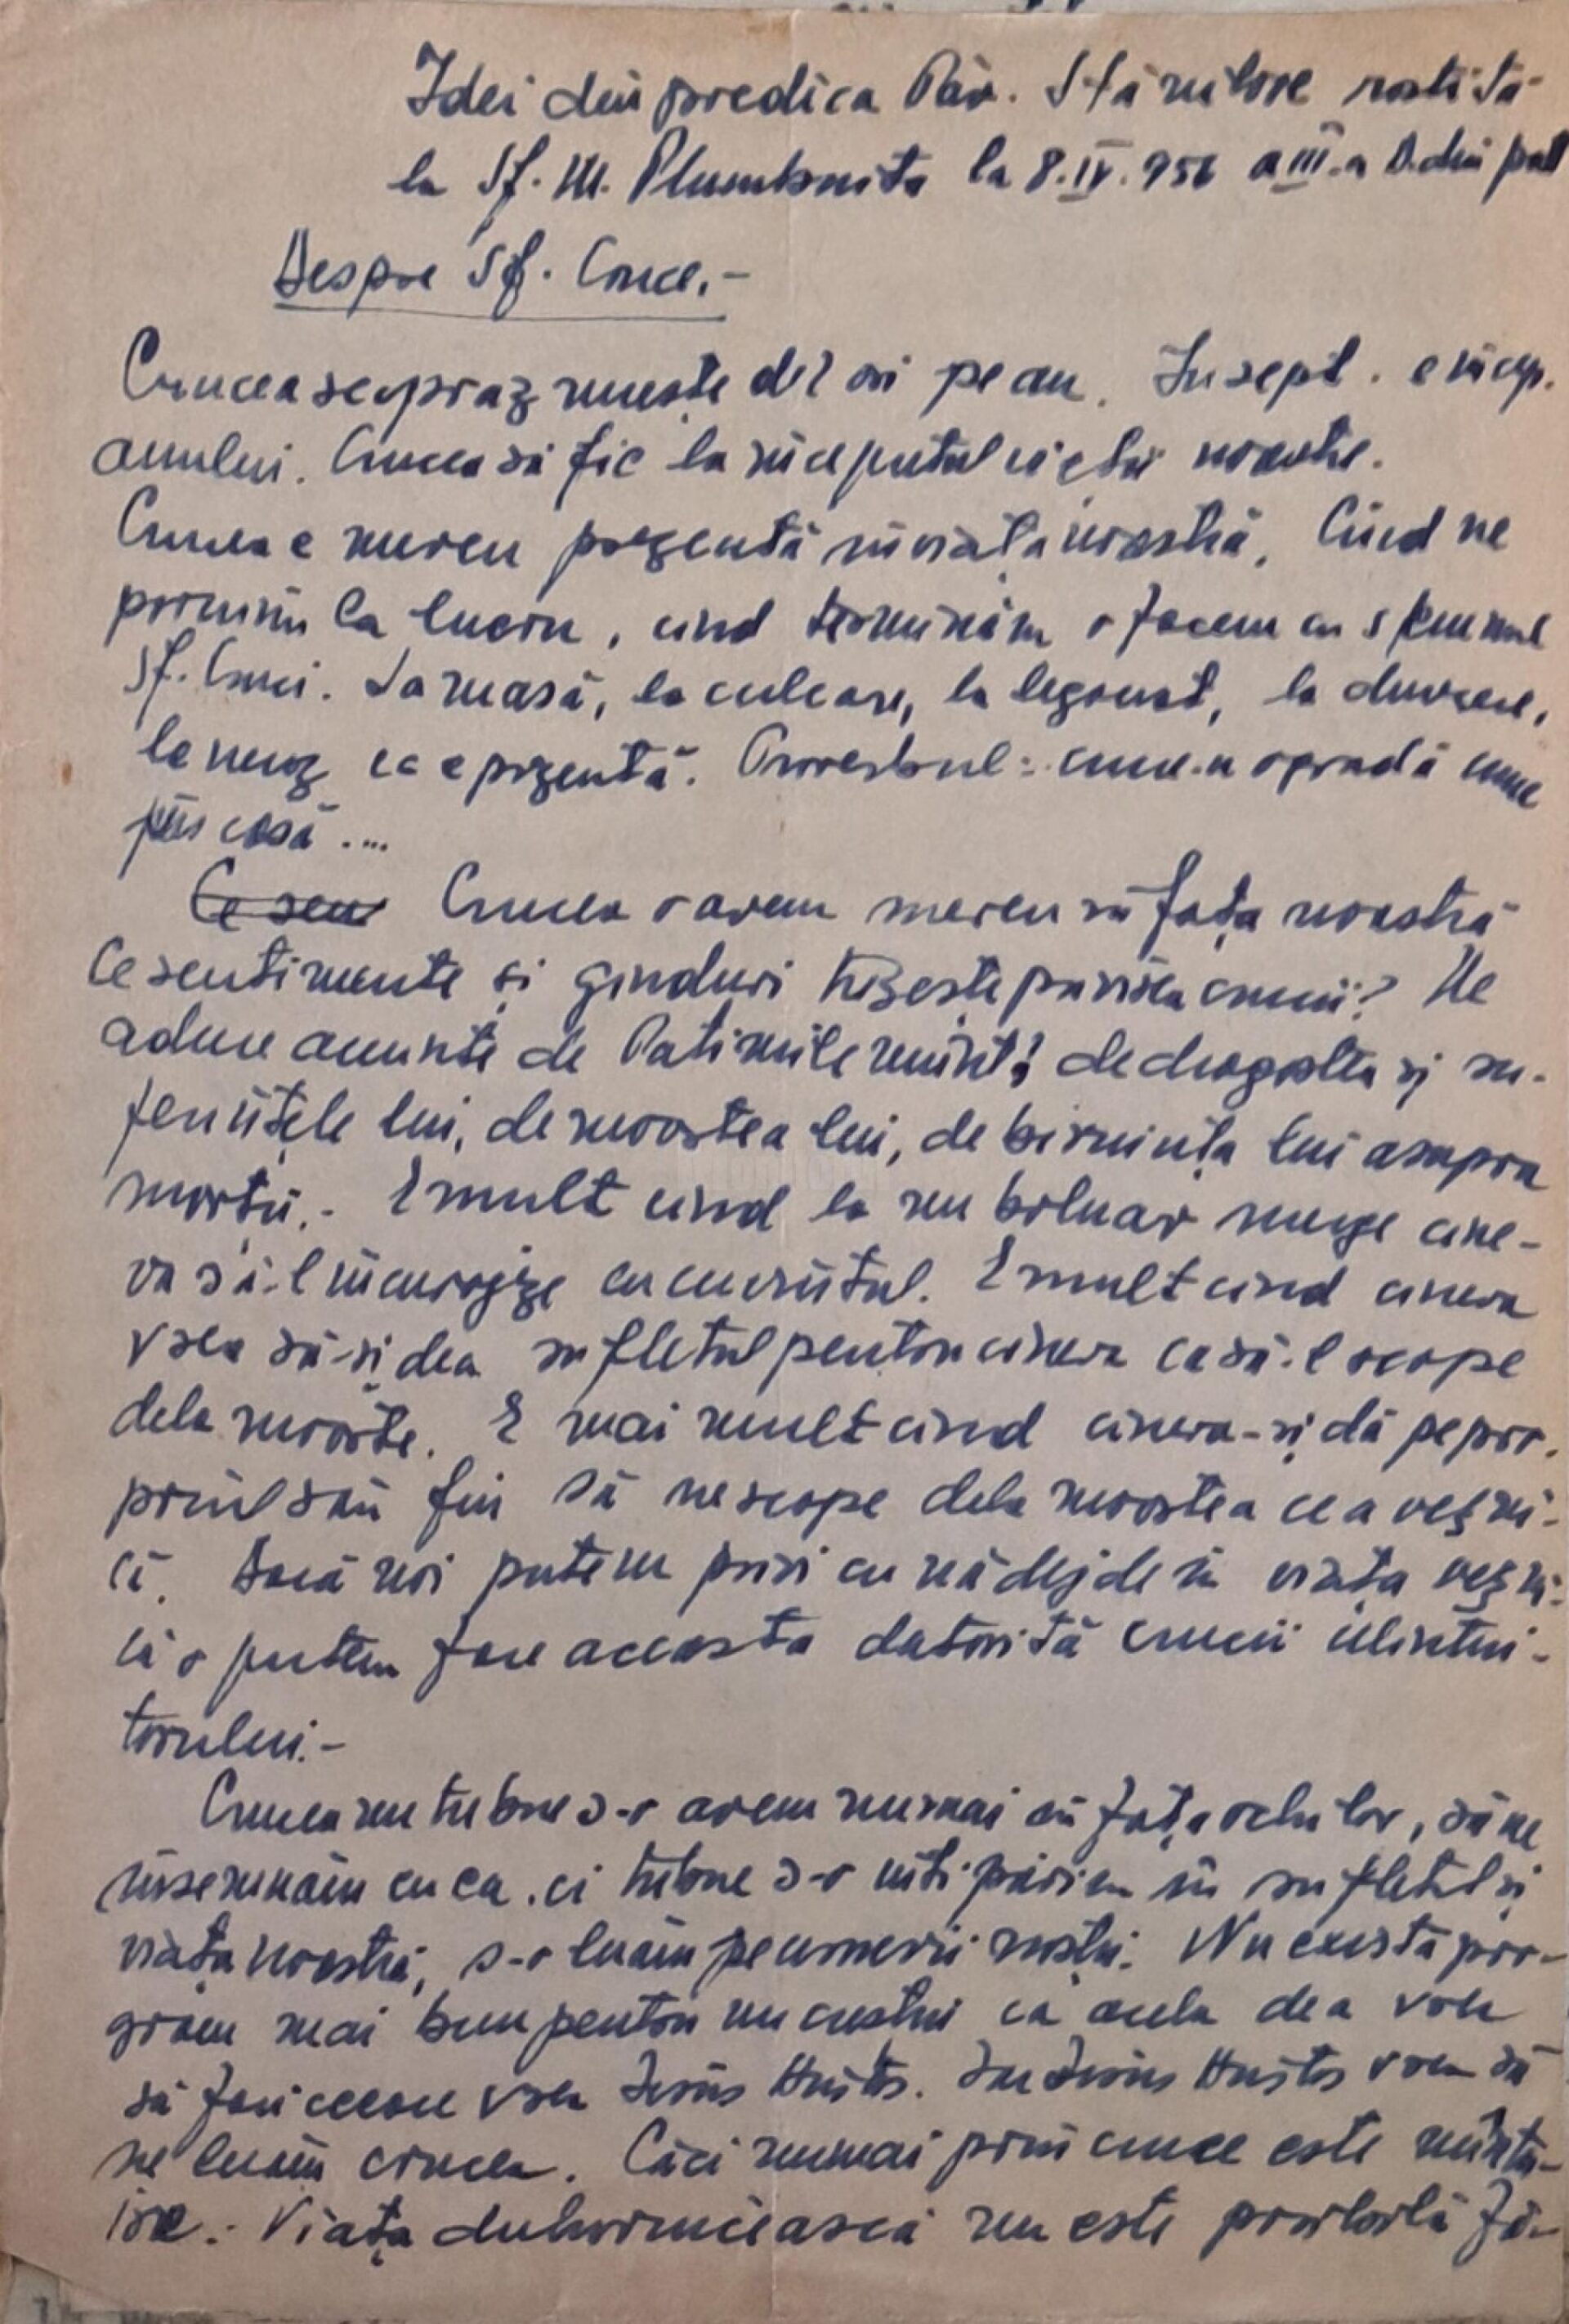 Idei din predica Păr. Stăniloae rostită
la Sf. M. Plumbuita la 8.IV.956 a III.a D. din post
Despre Sf. Cruce.-
Crucea se prăznuește de 2 ori pe an. In sept. e încep.
anului. Crucea să fie la începutul vieții noastre.
Crucea e mereu prezentă în viața noastră. Cînd ne
pornim la lucru, cînd terminăm o facem cu semnul
Sf. Cruci. La masă, la culcare, la legonat, la durere,
la necaz ea e prezentă. Proverbul: cruce-n ogradă cruce
prin casă ....
Ce sen Crucea o avem mereu în fața noastră
Ce sentimente și gînduri trezește privirea crucii? Ne
aduce aminte de Patimile Mînt! de dragostea și su-
ferințele lui, de moartea lui, de biruința lui asupra
morții.- E mult cînd la un bolnav merge cine-
va să-l încurajeze cu cuvîntul. E mult cînd cineva
vrea să-și dea sufletul pentru cineva ca să-l scape
dela moarte. E mai mult cînd cineva-și dă pe pro-
priul său fiu să ne scape dela moartea cea veșni-
că. Dacă noi putem privi cu nădejde în viața veșni-
că o putem face aceasta datorită crucii Mîntui-
torului.-
Crucea nu trebue s-o avem numai în fața ochilor, să ne
însemnăm cu ea, ci trebue s-o întipărim în sufletul și
viața noastră, s-o luăm pe umerii noștri. Nu există pro-
gram mai bun pentru un creștin ca acela de a vrea
să faci ceeace vrea Iesus Hristos. Iar Iesus Hristos vrea să
ne luăm crucea. Căci numai prin cruce este mîntu-
ire.- Viața duhovnicească nu este posibilă fă-